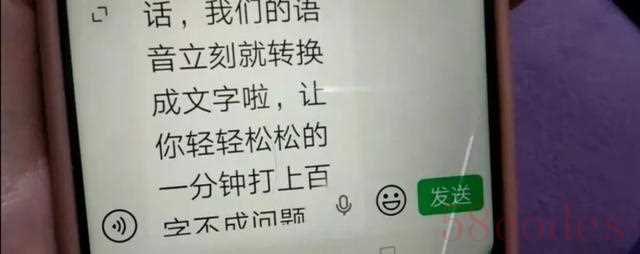 话，我们的语
音立刻就转换
成文字啦，让
你轻轻松松的
一分钟打上百
字不成问题
发送
58codes